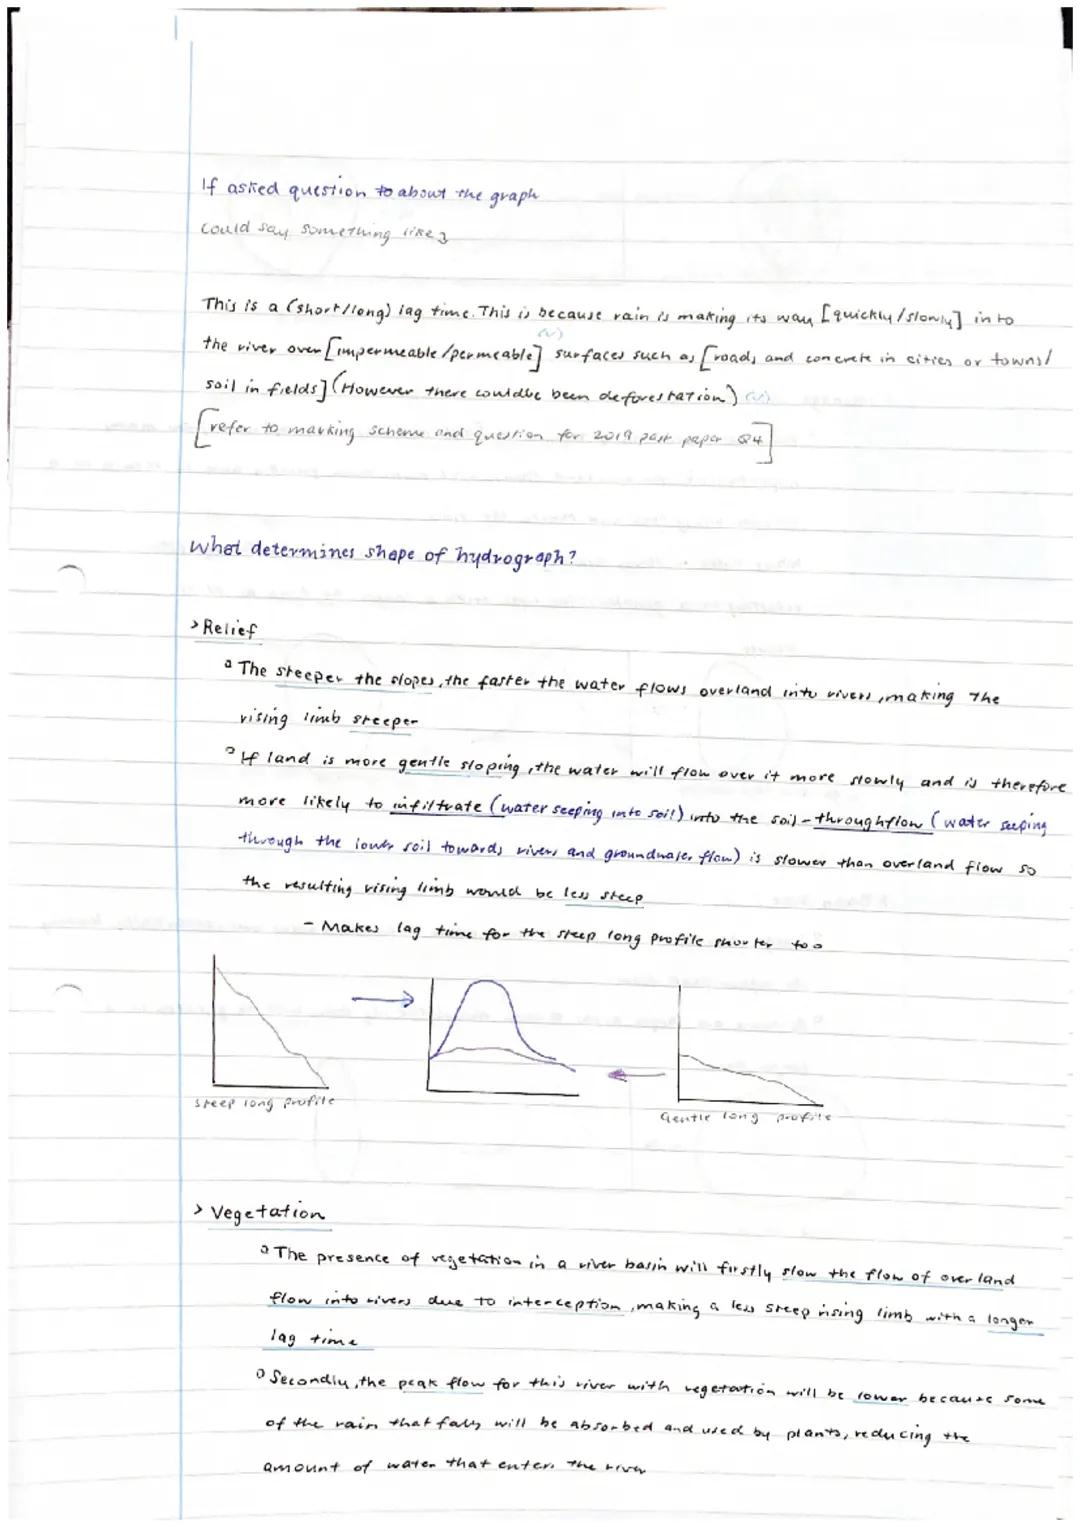 If asked question to about the graph
Could say something like }
This is a (short/long) lag time. This is because rain is making its way [quickly/slowly] in to
(v)
the river over [impermeable/permeable] surfaces such as [roads and concrete in cities or towns/
soil in fields] (However there couldbe been deforestation) (v)
[refer to marking scheme and question for 2019 past paper Q4]
What determines shape of hydrograph?
> Relief
The steeper the slopes, the faster the water flows overland into rivers, making the
rising limb steeper
If land is more gentle sloping, the water will flow over it more slowly and is therefore
more likely to infiltrate (water seeping into soil) into the soil - throughflow (water seeping
through the lower soil towards rivers and groundwater flow) is slower than overland flow so
the resulting rising limb would be less steep
- Makes lag time for the steep long profile shorter too
Steep long profile
Gentle long profile
> Vegetation
The presence of vegetation in a river basin will firstly slow the flow of over land
flow into rivers due to interception, making a less steep rising limb with a longer
lag time
Secondly, the peak flow for this river with vegetation will be lower because some
of the rain that falls will be absorbed and used by plants, reducing the
amount of water that enters the river